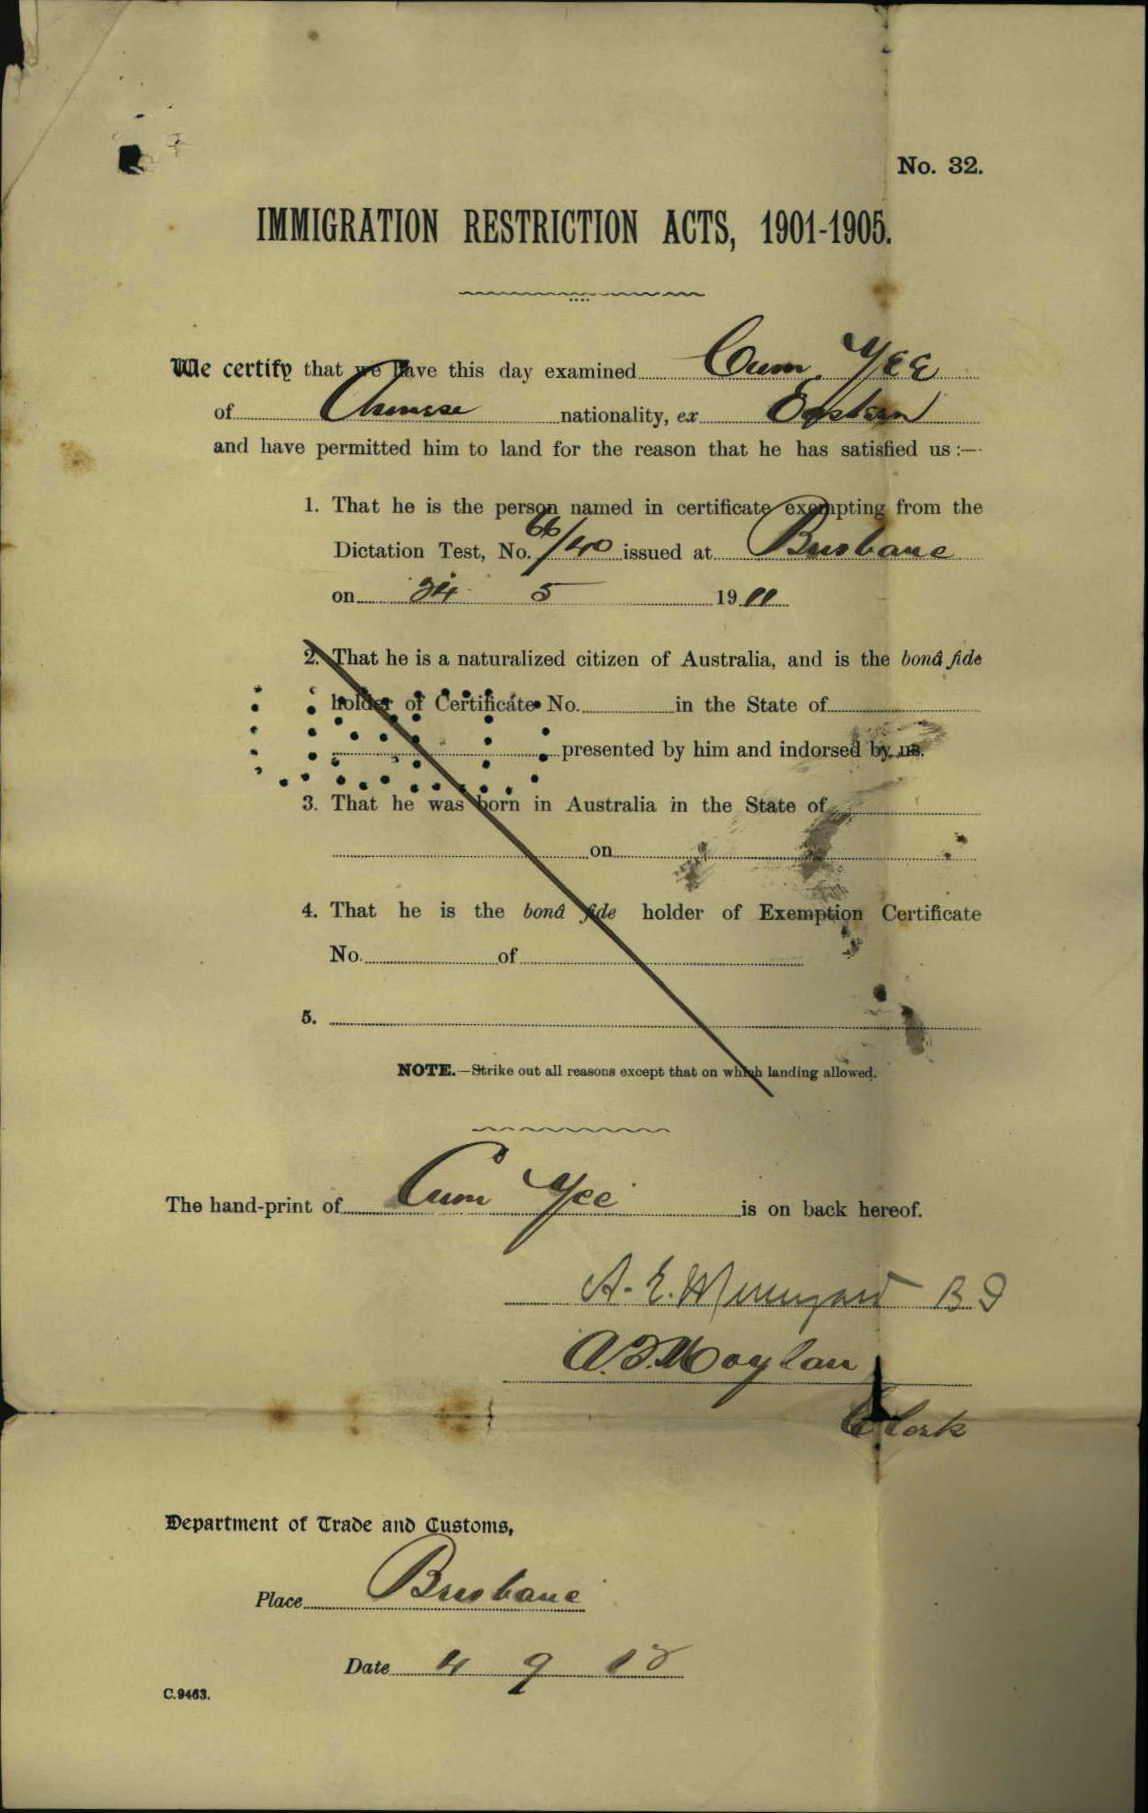 No. 32.
IMMIGRATION RESTRICTION ACTS, 1901-1905.
We certify that we have this day examined Cum Yee
of Chinese nationality, ex Eastern
and have permitted him to land for the reason that he has satisfied us :—
1. That he is the person named in certificate exempting from the
Dictation Test, No. 66/40 issued at Brisbane
on 24 5 1911
2. That he is a naturalized citizen of Australia, and is the bonâ fide
holder of Certificate No. in the State of
presented by him and indorsed by us.
3. That he was born in Australia in the State of
on
4. That he is the bonâ fide holder of Exemption Certificate
No. of
5.
NOTE.—Strike out all reasons except that on which landing allowed.
The hand-print of Cum Yee is on back hereof.
A. E.
Moylan
Clerk
Department of Trade and Customs,
Place Brisbane
Date 4 9 12
C.9463.